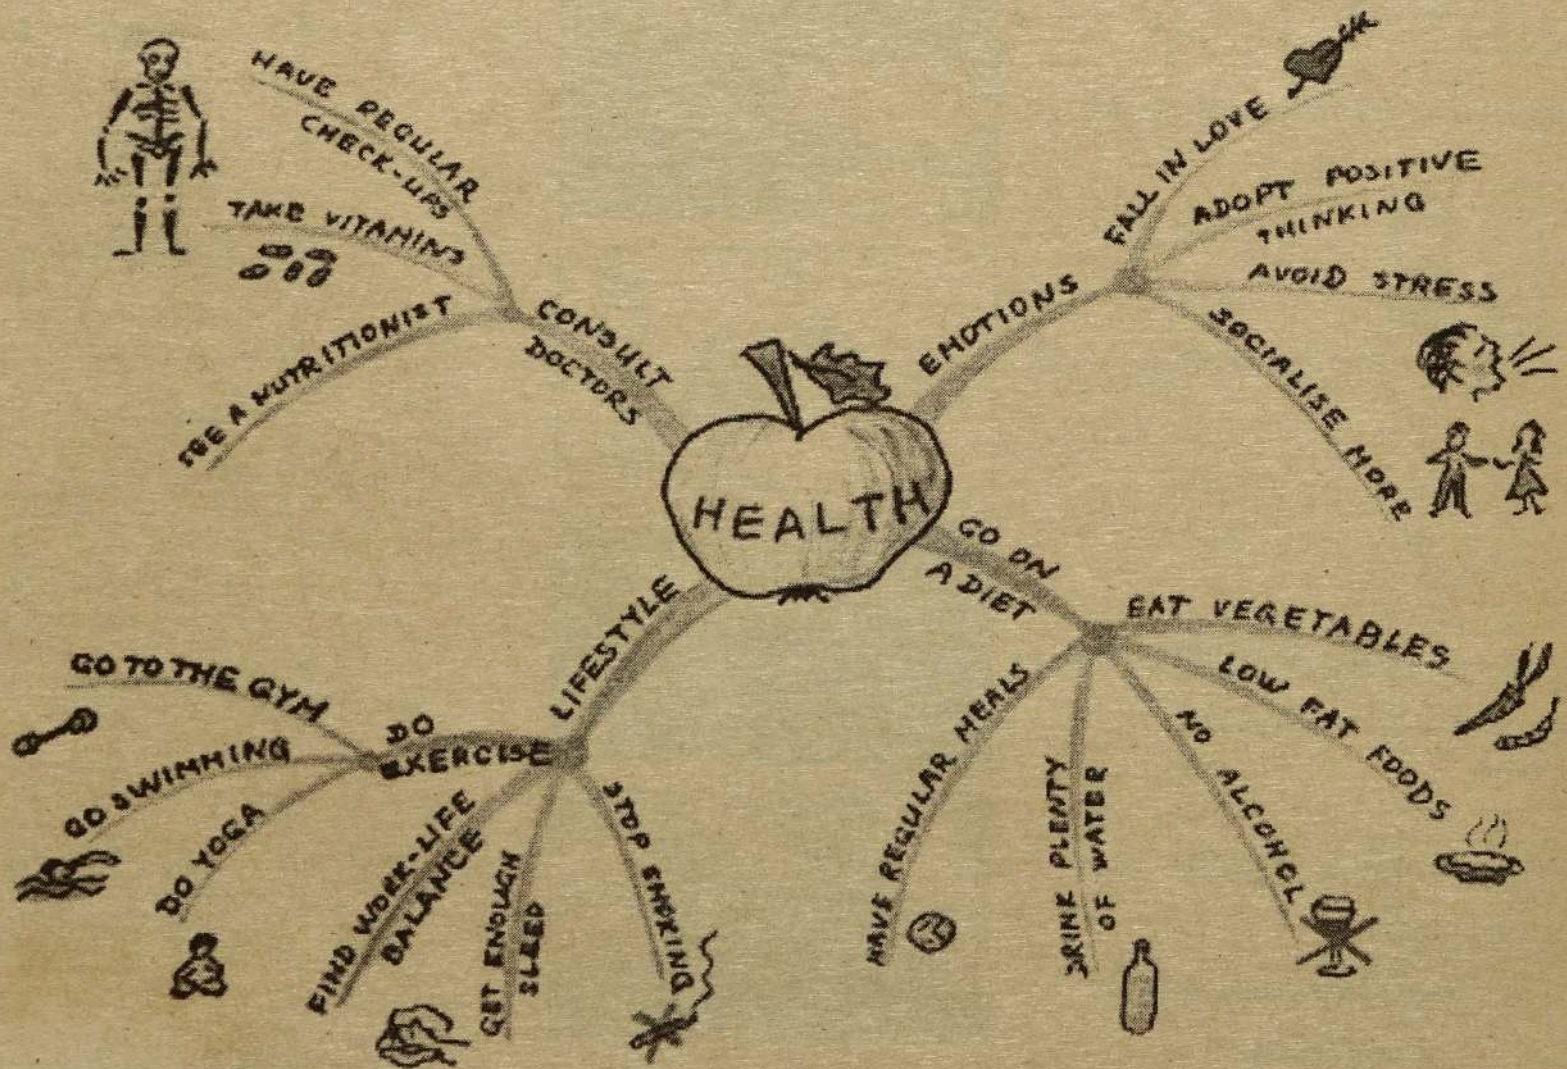 HEALTH
CONSULT
DOCTORS
HAVE REGULAR
CHECK-UPS
TAKE VITAMINS
SEE A NUTRITIONIST
EMOTIONS
FALL IN LOVE
ADOPT POSITIVE
THINKING
AVOID STRESS
SOCIALISE MORE
GO ON
A DIET
EAT VEGETABLES
LOW FAT FOODS
NO ALCOHOL
DRINK PLENTY
OF WATER
HAVE REGULAR MEALS
LIFESTYLE
DO
EXERCISE
GO TO THE GYM
GO SWIMMING
DO YOGA
FIND WORK-LIFE
BALANCE
GET ENOUGH
SLEEP
STOP SMOKING